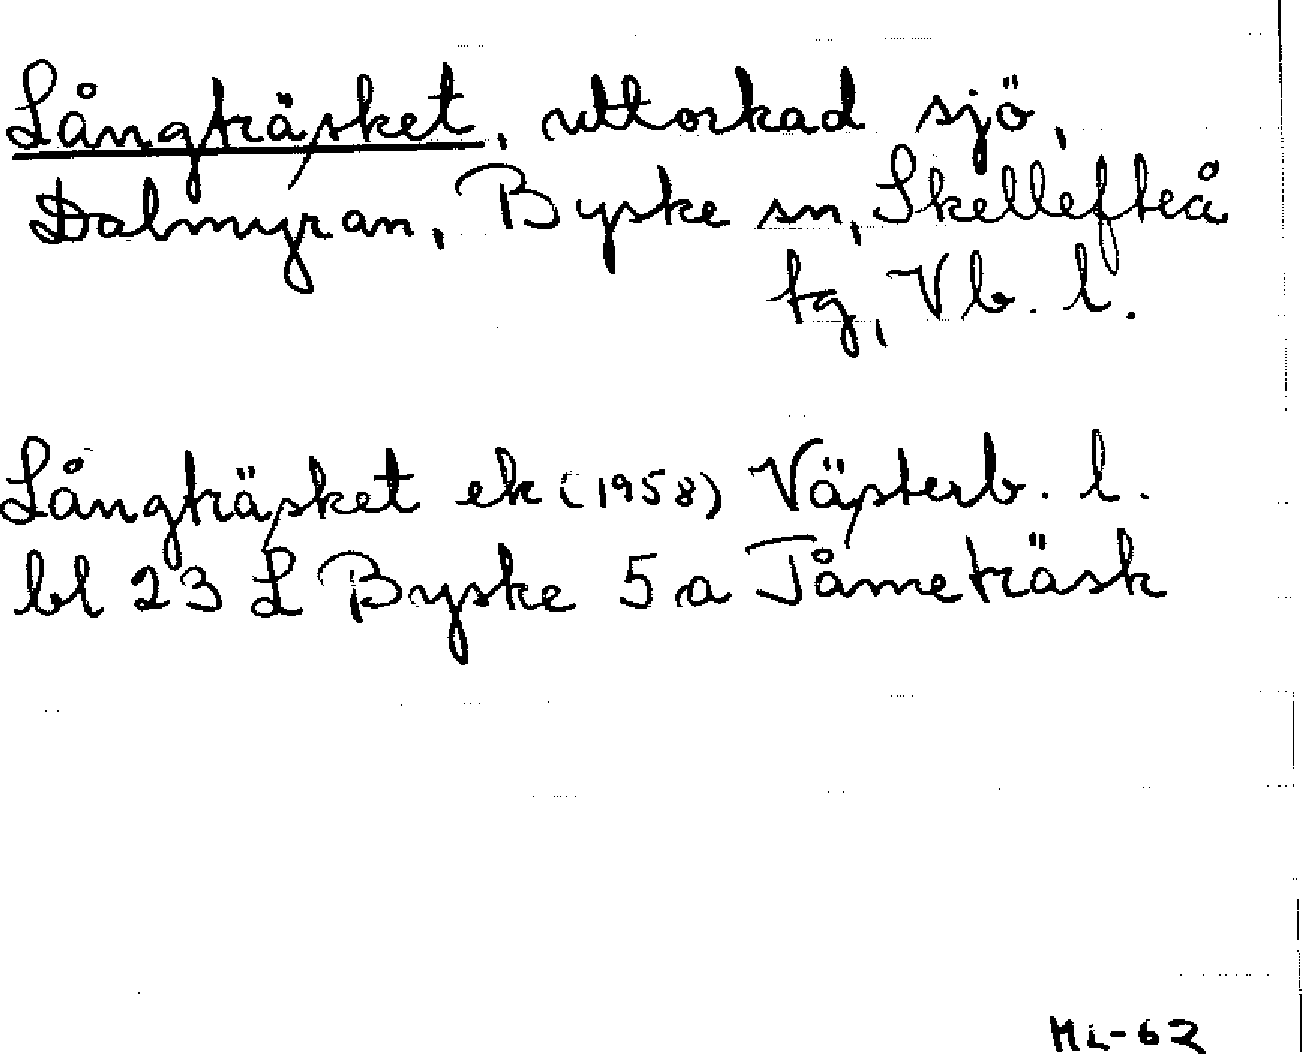 Långträsket, uttorkad sjö,
Dalmyran, Byske sn, Skellefteå
tg, Vb. l.
Långträsket ek (1958) Västerb. l.
bl 23 L Byske 5 a Tåmeträsk
ML-62